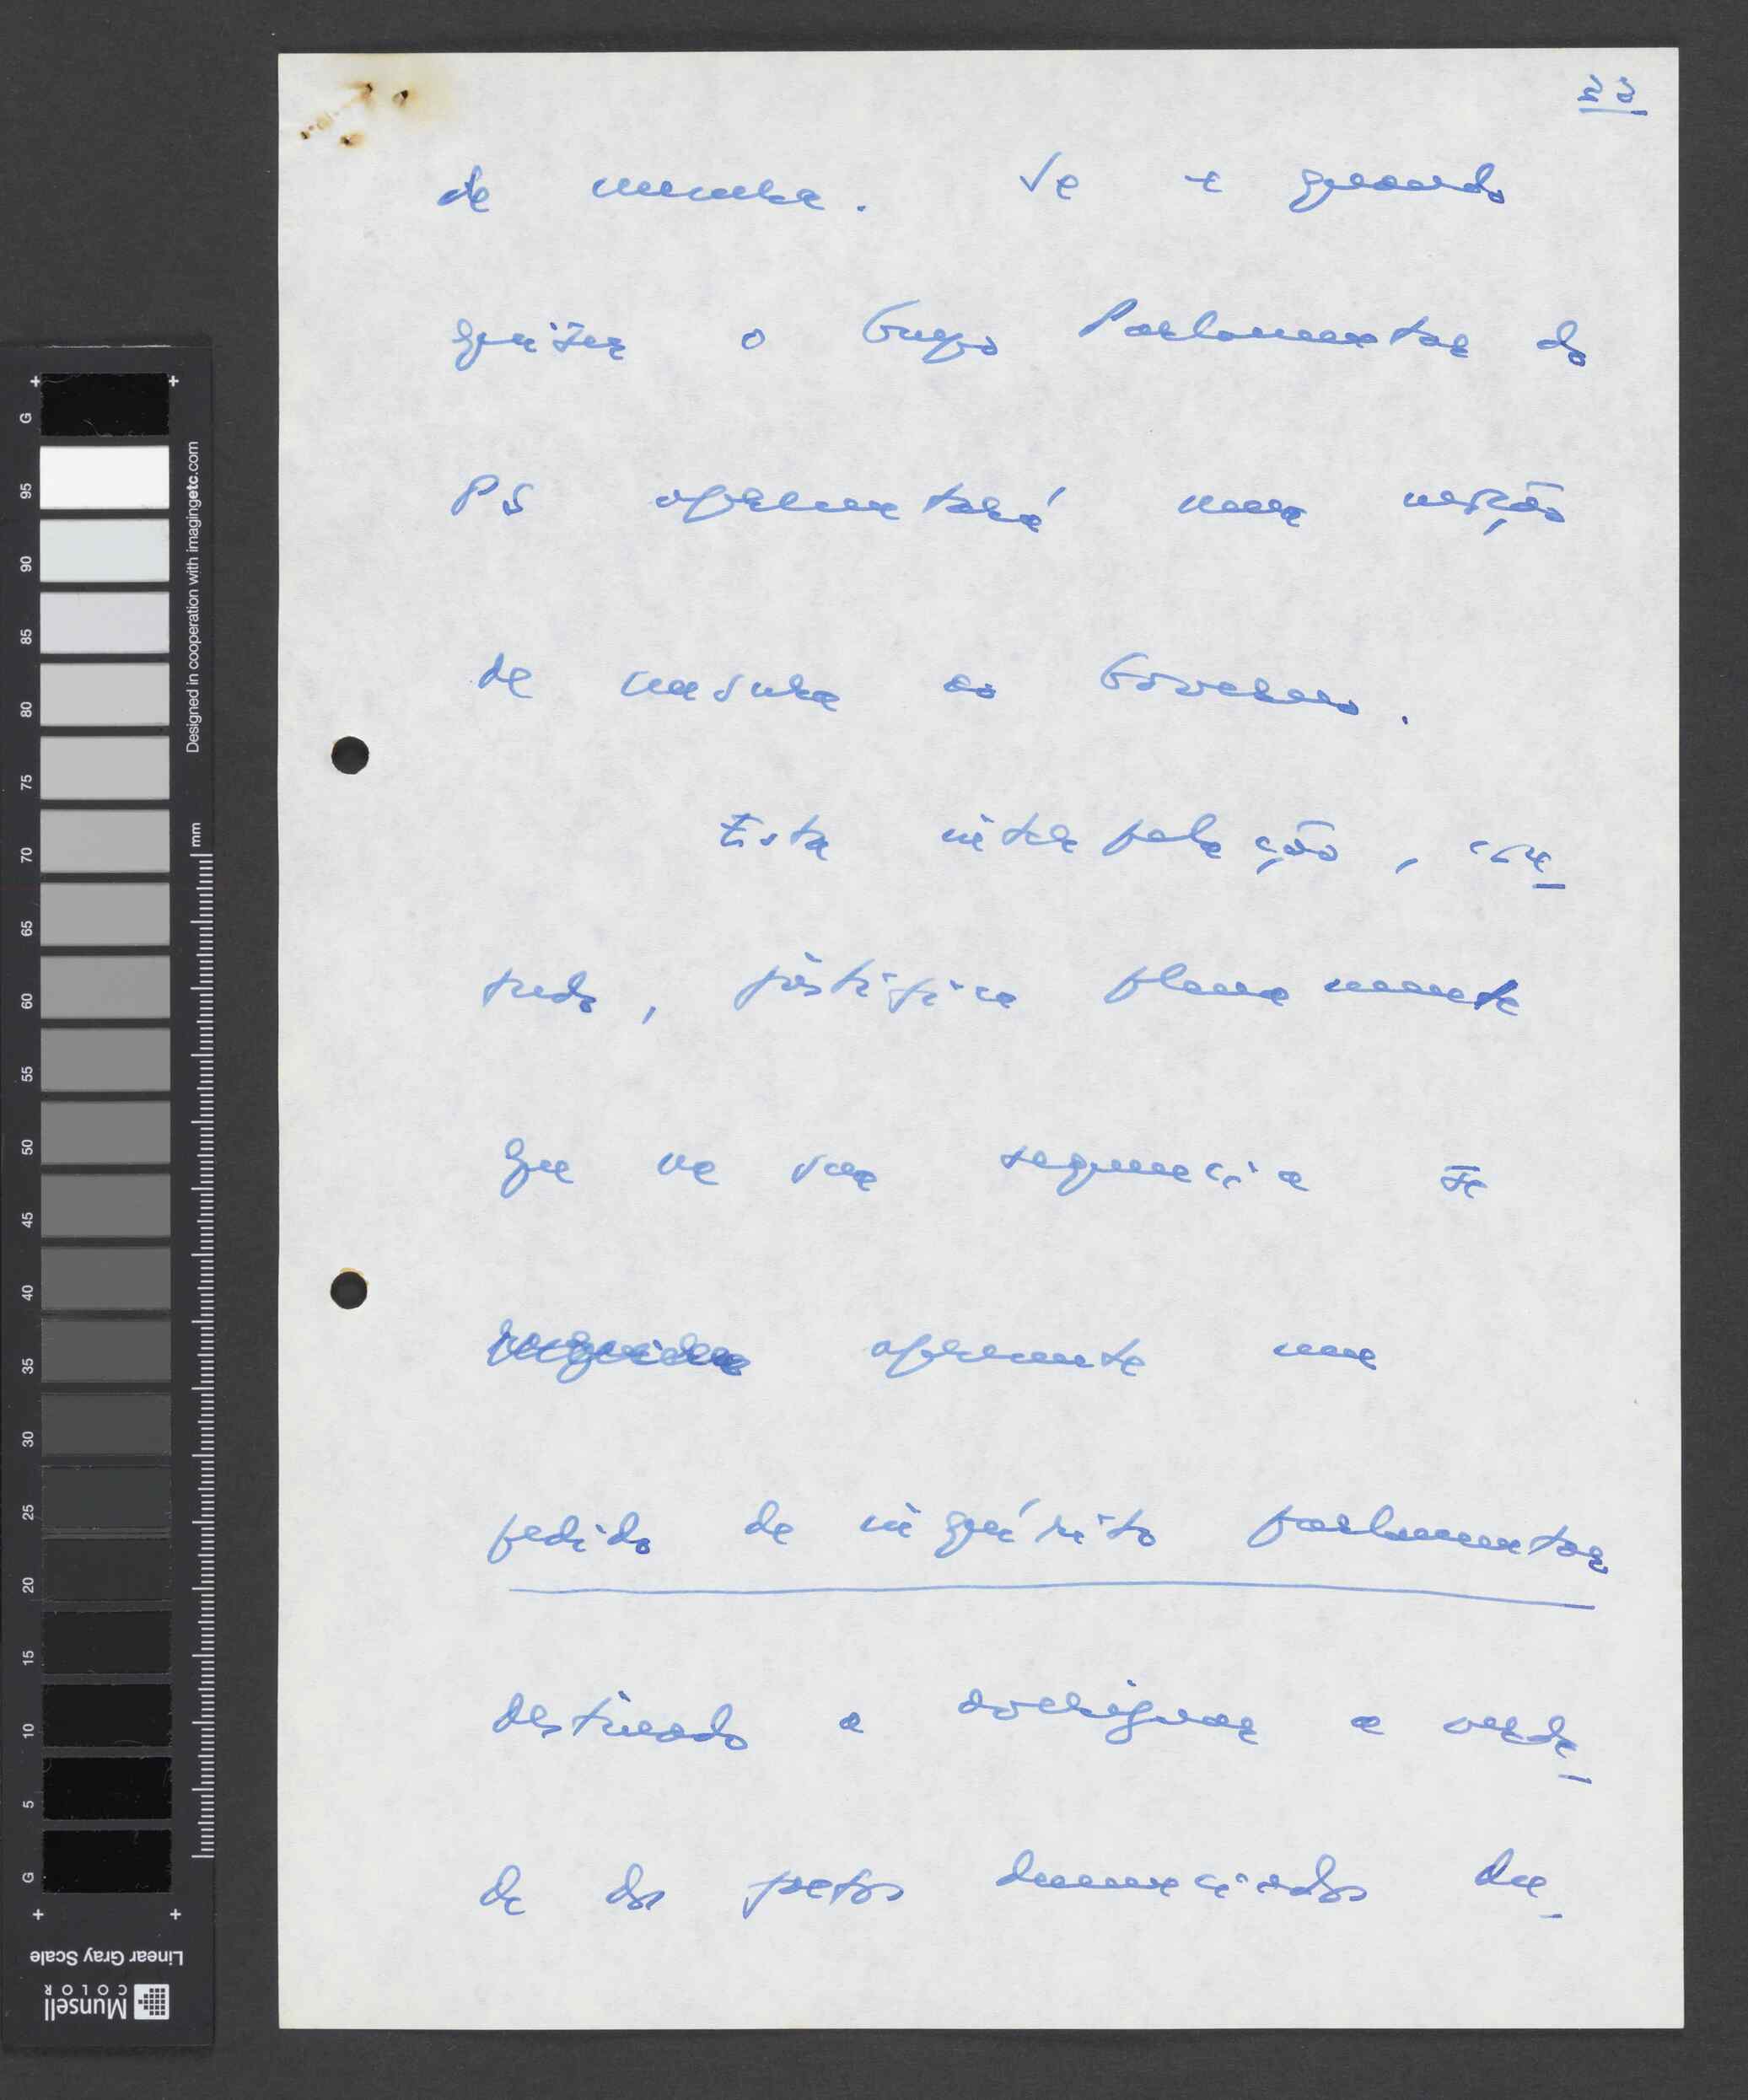 23
de censura. Se e quando
quiser o Grupo Parlamentar do
PS apresentará uma moção
de censura ao Governo.
Esta interpelação, con-
tudo, justifica plenamente
que na sua sequência se
apresente um
pedido de inquérito parlamentar
destinado a averiguar a verda-
de dos factos denunciados du-
G 95 90 85 80 75 70 65 60 55 50 45 40 35 30 25 20 15 10 5 G
Designed in cooperation with imagingetc.com
mm
Linear Gray Scale
Munsell
COLOR